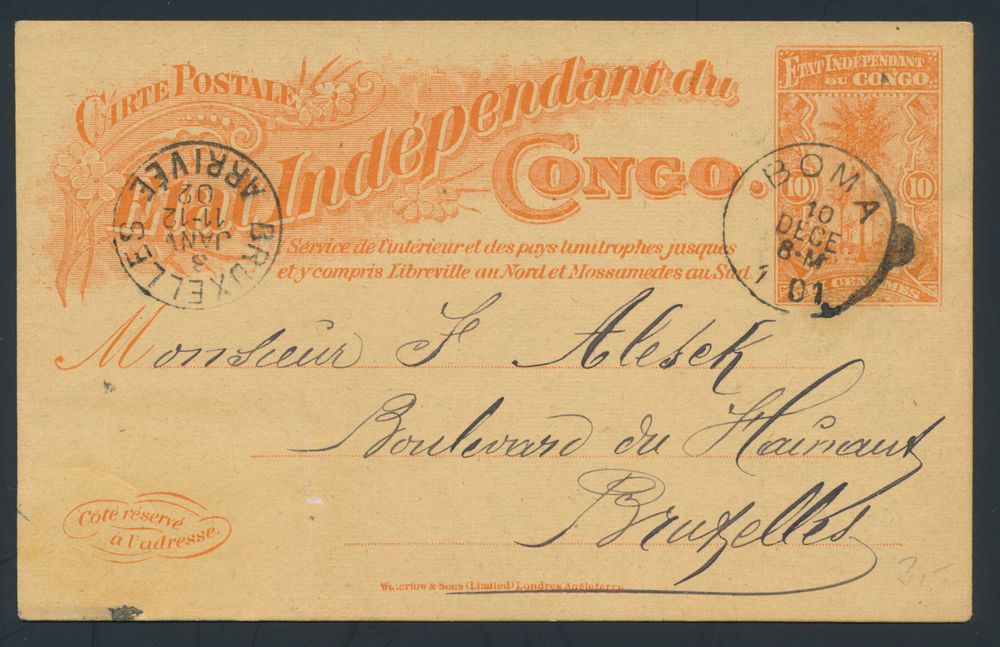 CARTE POSTALE
Etat Indépendant du
CONGO.
Service de l'intérieur et des pays limitrophes jusques
et y compris Libreville au Nord et Mossamedes au Sud.
ÉTAT INDÉPENDANT
DU CONGO.
10 10
CENTIMES
BOMA
10
DECE
8-M
1 01
BRUXELLES
3
JANV
11-12
02
ARRIVÉE
Monsieur F Alesck
Boulevard du Hainaut
Bruxelles
Côté réservé
a l'adresse.
Waterlow & Sons (Limited) Londres Angleterre
3,-